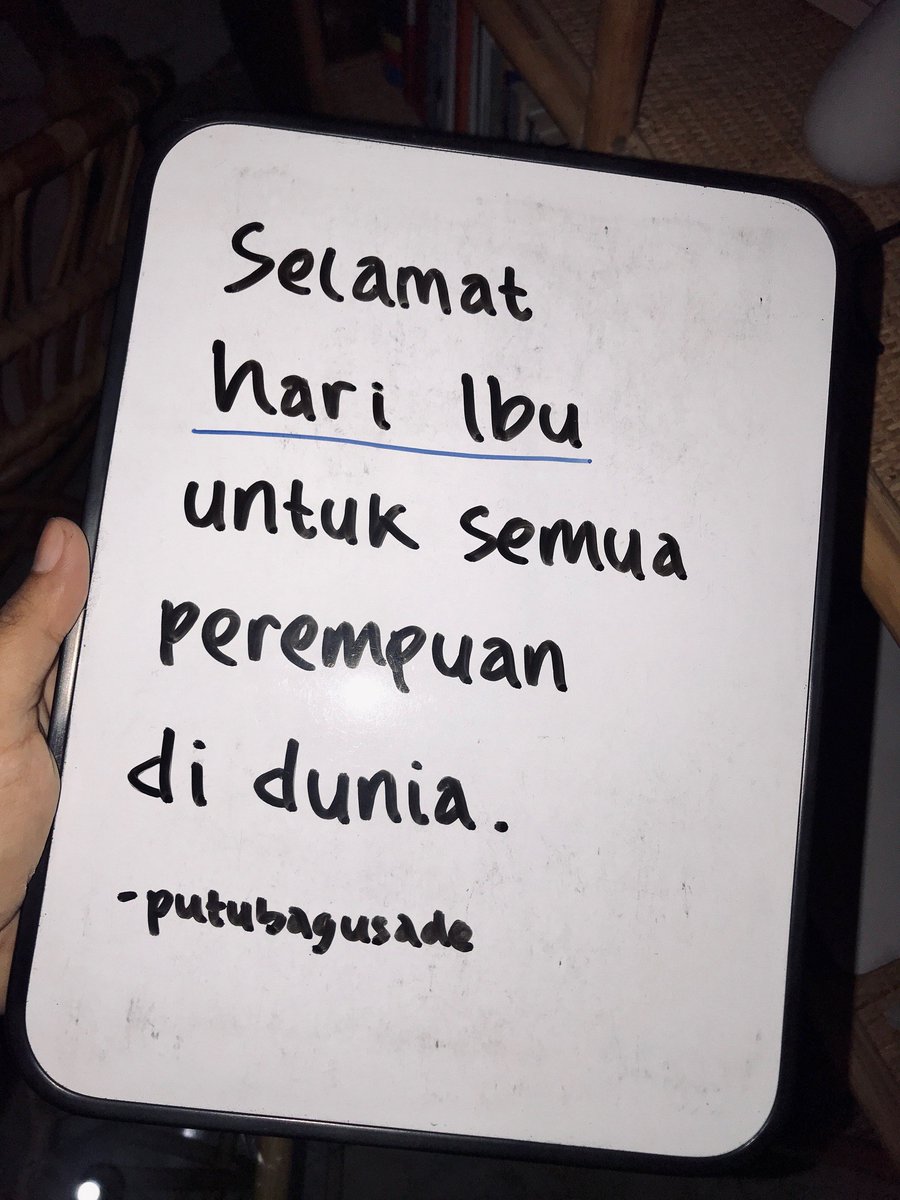 Selamat
hari Ibu
untuk semua
perempuan
di dunia.
-putubagusade